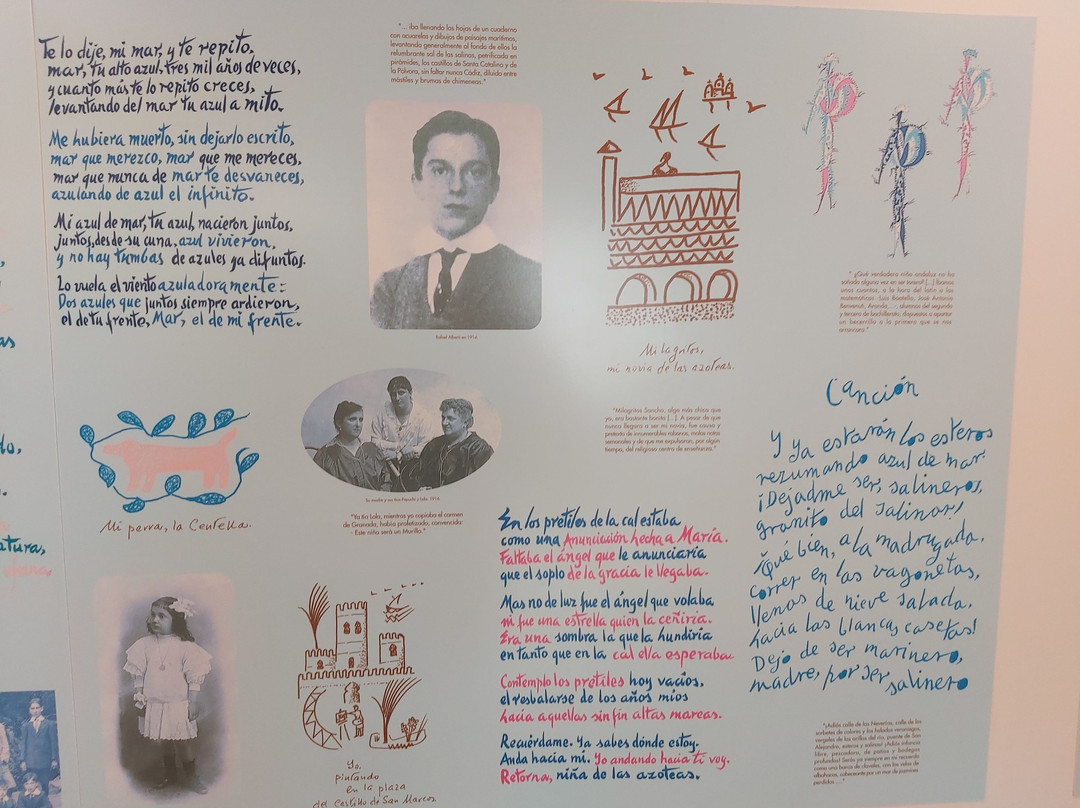 Te lo dije, mi mar, y te repito,
mar, tu alto azul, tres mil años de veces,
y cuanto más te lo repito creces,
levantando del mar tu azul a mito.
Me hubiera muerto, sin dejarlo escrito,
mar que merezco, mar que me mereces,
mar que nunca de mar te desvaneces,
azulando de azul el infinito.
Mi azul de mar, tu azul, nacieron juntos,
juntos, desde su cuna, azul vivieron,
y no hay tumbas de azules ya difuntos.
Lo vuela el viento azuladoramente:
Dos azules que juntos siempre ardieron,
el de tu frento, Mar, el de mi frente.
Mi perra, la Centella.
"... iba llenando las hojas de un cuaderno
con acuarelas y dibujos de paisajes marítimos,
levantando generalmente al fondo de ellos la
relumbrante sal de las salinas, petrificada en
pirámides, los castillos de Santa Catalina y de
la Pólvora, sin faltar nunca Cádiz, diluido entre
mástiles y brumas de chimeneas."
Rafael Alberti en 1914
Su madre y sus tías Pepichi y Lola. 1916.
"Ya tía Lola, mientras yo copiaba el carmen
de Granada, había profetizado, convencida:
- Este niño será un Murillo."
Yo,
pintando
en la plaza
del Castillo de San Marcos
Milagritos,
mi novia de las azoteas.
"Milagritos Sancho, algo más chica que
yo, era bastante bonita [...]. A pesar de que
nunca llegara a ser mi novia, fue causa y
pretexto de innumerables rabonas, malas notas
semanales y de que me expulsaran, por algún
tiempo, del religioso centro de enseñanza."
En los pretiles de la cal estaba
como una Anunciación hecha a María.
Faltaba el ángel que le anunciaría
que el soplo de la gracia le llegaba.
Mas no de luz fue el ángel que volaba
ni fue una estrella quien la ceñiría.
Era una sombra la que la hundiría
en tanto que en la cal ella esperaba.
Contemplo los pretiles hoy vacíos,
el resbalarse de los años míos
hacia aquellas sin fin altas mareas.
Recuérdame. Ya sabes dónde estoy.
Anda hacia mí. Yo andando hacia ti voy.
Retorna, niña de las azoteas.
"¿Qué verdadero niño andaluz no ha
soñado alguna vez en ser torero? [...] Éramos
unos cuantos, a la hora del latín o las
matemáticas -Luis Bootello, José Antonio
Benvenuti, Aranda, ..., alumnos del segundo
y tercero de bachillerato, dispuestos a apartar
un becerrillo a la primera que se nos
arrancara."
Canción
Y ya estarán los esteros
rezumando azul de mar.
¡Dejadme ser, salineros,
granito del salinar!
¡Qué bien, a la madrugada,
correr en las vagonetas,
llenas de nieve salada,
hacia las blancas casetas!
Dejo de ser marinero,
madre, por ser
salinero
libre, pescadora, de patios y bodegas